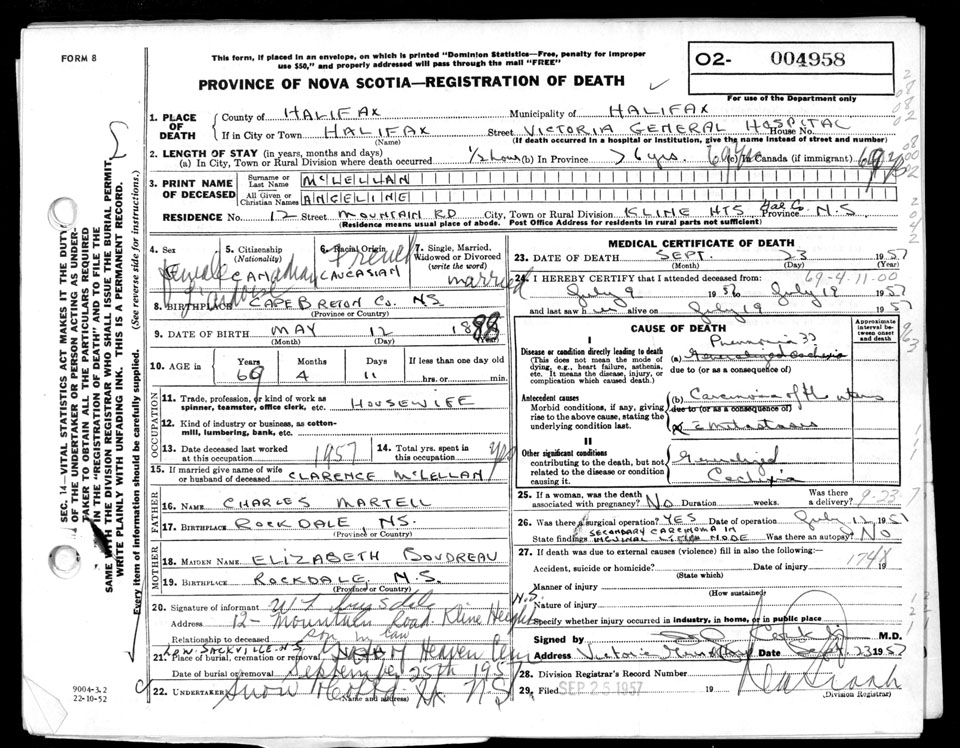 FORM 8
This form, if placed in an envelope, on which is printed "Dominion Statistics—Free, penalty for improper
use $50," and properly addressed will pass through the mail "FREE"
PROVINCE OF NOVA SCOTIA—REGISTRATION OF DEATH
O2- 004958
For use of the Department only
1. PLACE OF DEATH County of HALIFAX Municipality of HALIFAX
If in City or Town HALIFAX Street VICTORIA GENERAL HOSPITAL House No.
(Name) (If death occurred in a hospital or institution, give the name instead of street and number)
2. LENGTH OF STAY (in years, months and days)
(a) In City, Town or Rural Division where death occurred 1/2 hour (b) In Province (c) In Canada (if immigrant)
3. PRINT NAME OF DECEASED Surname or Last Name McLELLAN
All Given or Christian Names ANGELINE
RESIDENCE No. 12 Street MOUNTAIN RD City, Town or Rural Division KLINE HTS Hal Co. Province N.S
(Residence means usual place of abode. Post Office Address for residents in rural parts not sufficient)
4. Sex Female
5. Citizenship (Nationality) CANADIAN
6. Racial Origin French CAUCASIAN
7. Single, Married, Widowed or Divorced (write the word) married
8. BIRTHPLACE CAPE BRETON Co. NS
(Province or County)
9. DATE OF BIRTH MAY 12 1888
(Month) (Day) (Year)
10. AGE in Years 69 Months 4 Days 11 If less than one day old
hrs. or min.
OCCUPATION
11. Trade, profession, or kind of work as spinner, teamster, office clerk, etc. HOUSEWIFE
12. Kind of industry or business, as cotton-mill, lumbering, bank, etc.
13. Date deceased last worked at this occupation 1957
14. Total yrs. spent in this occupation
15. If married give name of wife or husband of deceased CLARENCE McLELLAN
FATHER
16. NAME CHARLES MARTELL
17. BIRTHPLACE ROCKDALE, NS.
(Province or County)
MOTHER
18. MAIDEN NAME ELIZABETH BOUDREAU
19. BIRTHPLACE ROCKDALE N.S.
(Province or County)
20. Signature of informant
Address 12- Mountain Road Kline Heights N.S.
Relationship to deceased son in law
LOW. SACKVILLE. N.S.
21. Place of burial, cremation or removal Heaven
Date of burial or removal September 25th 1957
22. UNDERTAKER Snow
(Name and address)
MEDICAL CERTIFICATE OF DEATH
23. DATE OF DEATH SEPT. 23 1957
(Month) (Day) (Year)
69-4-11-00
24. I HEREBY CERTIFY that I attended deceased from:
July 9 1956 to July 19 1957
and last saw h alive on July 19 1957
CAUSE OF DEATH
Approximate interval between onset and death
I
Disease or condition directly leading to death
(This does not mean the mode of dying, e.g., heart failure, asthenia, etc. It means the disease, injury, or complication which caused death.)
Pneumonia
(a) Generalized Cachexia
due to (or as a consequence of)
Antecedent causes
Morbid conditions, if any, giving rise to the above cause, stating the underlying condition last.
(b) Carcinoma of the uterus
due to (or as a consequence of)
metastases
II
Other significant conditions
contributing to the death, but not related to the disease or condition causing it.
Generalized
Cachexia
25. If a woman, was the death associated with pregnancy? NO Duration weeks. Was there a delivery?
9-23-7
26. Was there a surgical operation? YES Date of operation July 12 1957
State findings SECONDARY CARCINOMA IN INGUINAL LYMPH NODE Was there an autopsy? No
27. If death was due to external causes (violence) fill in also the following:—
Accident, suicide or homicide? Date of injury 19
174X
(State which)
Manner of injury
(How sustained)
Nature of injury
Specify whether injury occurred in industry, in home, or in public place
Signed by M.D.
Address Victoria General Date Sept. 23 1957
28. Division Registrar's Record Number
29. Filed SEP 25 1957 19
(Division Registrar)
SEC. 14—VITAL STATISTICS ACT MAKES IT THE DUTY
OF THE UNDERTAKER OR PERSON ACTING AS UNDER-
TAKER TO OBTAIN ALL THE PARTICULARS REQUIRED
IN THE "REGISTRATION OF DEATH" AND TO FILE THE
SAME WITH THE DIVISION REGISTRAR WHO SHALL ISSUE THE BURIAL PERMIT.
WRITE PLAINLY WITH UNFADING INK. THIS IS A PERMANENT RECORD.
Every item of information should be carefully supplied. (See reverse side for instructions.)
9004-3.2
22-10-52